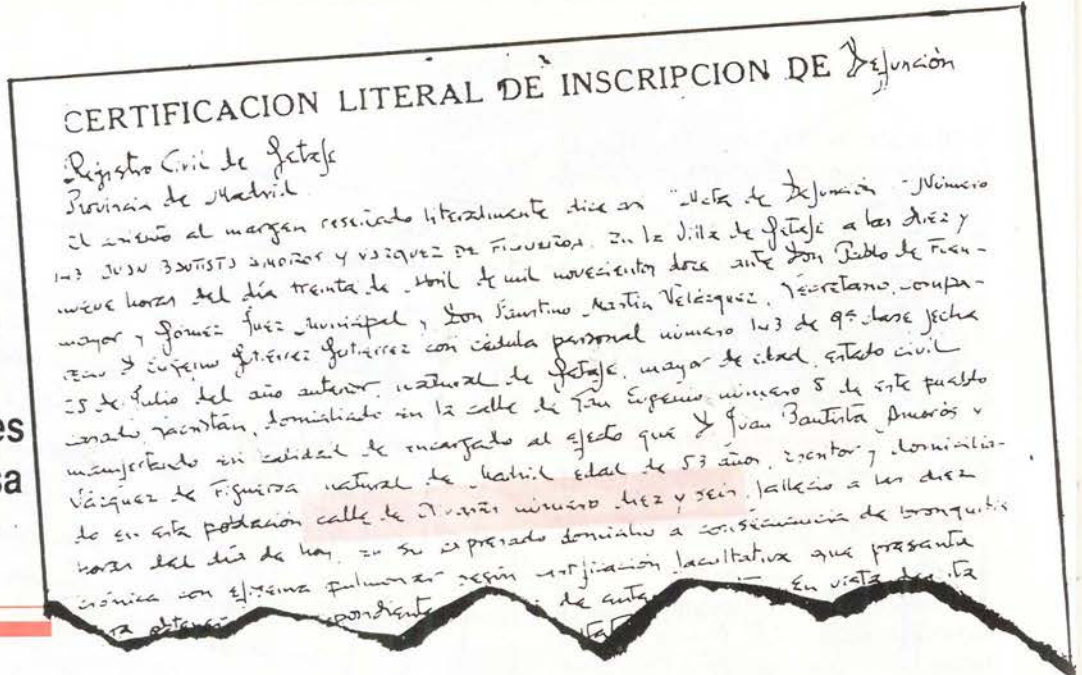 CERTIFICACION LITERAL DE INSCRIPCION DE Defunción
Registro Civil de Getafe
Provincia de Madrid
El asiento al margen reseñado literalmente dice así "Acta de Defunción - Número
143 JUAN BAUTISTA AMOROS Y VAZQUEZ DE FIGUEROA. En la Villa de Getafe a las diez y
nueve horas del día treinta de Abril de mil novecientos doce ante Don Pablo de Fuen-
mayor y Gómez Juez Municipal y Don Faustino Martín Velázquez, Secretario, compa-
reció D Eugenio Gutiérrez Gutiérrez con cédula personal número 143 de 9ª clase fecha
25 de Julio del año anterior, natural de Getafe, mayor de edad, estado civil
casado, sacristán, domiciliado en la calle de San Eugenio, número 5 de este pueblo
manifestando en calidad de encargado al efecto que D Juan Bautista Amorós y
Vázquez de Figueroa natural de Madrid edad de 53 años, escritor y domicilia-
do en esta población calle de número diez y seis, falleció a las diez
horas del día de hoy, en su expresado domicilio a consecuencia de bronquitis
crónica con efisema pulmonar según certificación facultativa que presenta
de En vista de
es
sa